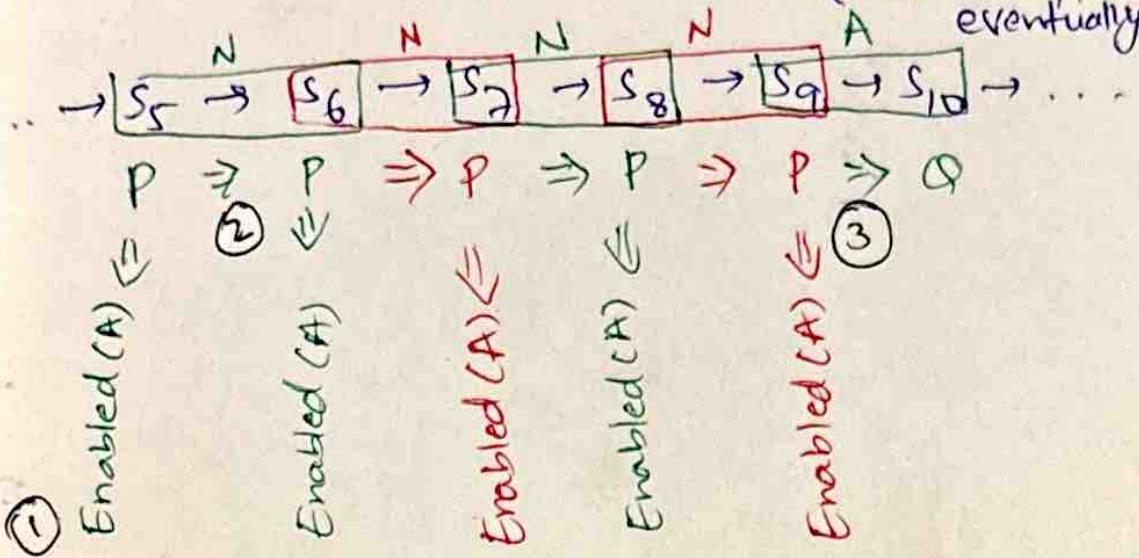 eventually
N N N N A
.. → S5 → S6 → S7 → S8 → S9 → S10 → ...
P ⇒ P ⇒ P ⇒ P ⇒ P ⇒ Q
② ③
⇓ ⇓ ⇓ ⇓ ⇓
Enabled (A) Enabled (A) Enabled (A) Enabled (A) Enabled (A)
①